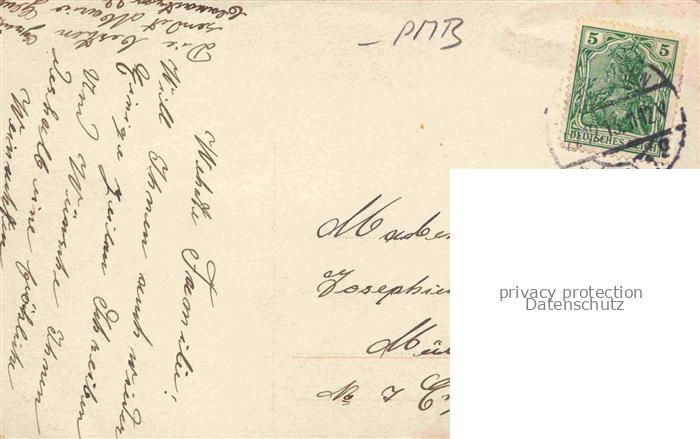 PMB
5 5
DEUTSCHES REICH
Madem
Josephin
Mül
No 7
privacy protection
Datenschutz
Wehrte Familie!
Will Ihnen auch wieder
Einige Zeilen Schreiben
Und Wünsche Ihnen
deshalb eine fröhliche
Weinachten
Die besten
sendet Marie